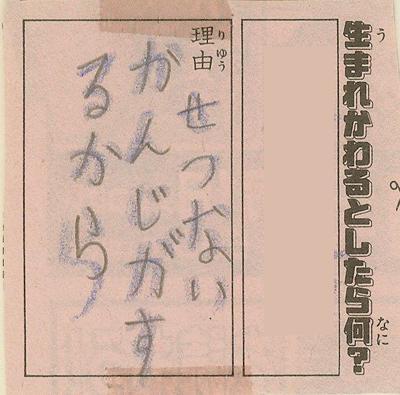 生まれかわるとしたら何?
理由
せつない
かんじがす
るから